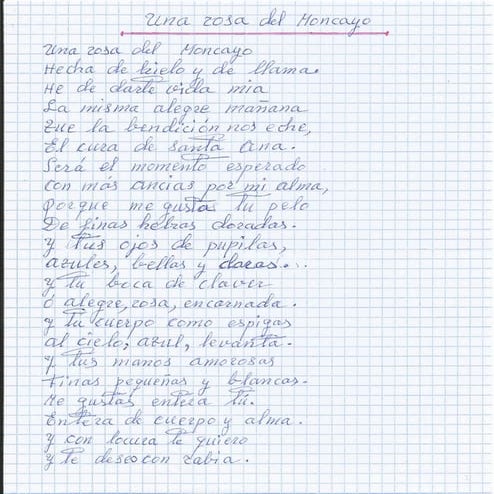 Una rosa del Moncayo
Una rosa del Moncayo
Hecha de hielo y de llama.
He de darte vida mia
La misma alegre mañana
que la bendición nos eche,
El cura de santa Ana.
Será el momento esperado
con más ancias por mi alma,
porque me gusta tu pelo
De finas hebras doradas.
y tus ojos de pupilas,
azules, bellas y claras...
y tu boca de clavel
ó alegre, rosa, encarnada.
y tu cuerpo como espigas
al cielo, azul, levanta.
y tus manos amorosas
Finas pequeñas y blancas.
Me gustas entera tú.
Entera de cuerpo y alma.
y con locura te quiero
y te deseo con rabia.